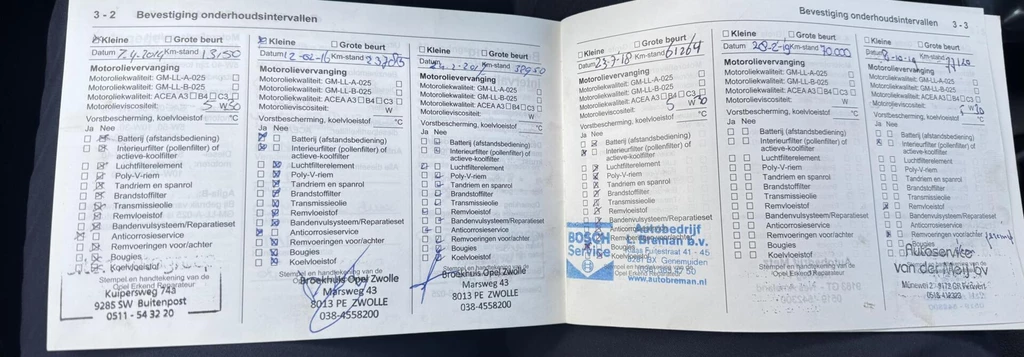 3 - 2 Bevestiging onderhoudsintervallen
Kleine Grote beurt
Datum 7.4.2014 Km-stand 13150
Motorolievervanging
Motoroliekwaliteit: GM-LL-A-025
Motoroliekwaliteit: GM-LL-B-025
Motoroliekwaliteit: ACEA A3 B4 C3
Motorolieviscositeit: 5 W30
Vorstbescherming, koelvloeistof °C
Ja Nee
Batterij (afstandsbediening)
Interieurfilter (pollenfilter) of
actieve-koolfilter
Luchtfilterelement
Poly-V-riem
Tandriem en spanrol
Brandstoffilter
Transmissieolie
Remvloeistof
Bandenvulsysteem/Reparatieset
Anticorrosieservice
Remvoeringen voor/achter
Bougies
Koelvloeistof
Stempel en handtekening van de
Opel Erkend Reparateur
Kuipersweg 74a
9285 SW Buitenpost
0511 - 54 32 20
Kleine Grote beurt
Datum Km-stand
Motorolievervanging
Motoroliekwaliteit: GM-LL-A-025
Motoroliekwaliteit: GM-LL-B-025
Motoroliekwaliteit: ACEA A3 B4 C3
Motorolieviscositeit: W
Vorstbescherming, koelvloeistof °C
Ja Nee
Batterij (afstandsbediening)
Interieurfilter (pollenfilter) of
actieve-koolfilter
Luchtfilterelement
Poly-V-riem
Tandriem en spanrol
Brandstoffilter
Transmissieolie
Remvloeistof
Bandenvulsysteem/Reparatieset
Anticorrosieservice
Remvoeringen voor/achter
Bougies
Koelvloeistof
Stempel en handtekening van de
Broekhuis Opel Zwolle
Marsweg 43
8013 PE ZWOLLE
038-4558200
Kleine Grote beurt
Datum Km-stand
Motorolievervanging
Motoroliekwaliteit: GM-LL-A-025
Motoroliekwaliteit: GM-LL-B-025
Motoroliekwaliteit: ACEA A3 B4 C3
Motorolieviscositeit: W
Vorstbescherming, koelvloeistof °C
Ja Nee
Batterij (afstandsbediening)
Interieurfilter (pollenfilter) of
actieve-koolfilter
Luchtfilterelement
Poly-V-riem
Tandriem en spanrol
Brandstoffilter
Transmissieolie
Remvloeistof
Bandenvulsysteem/Reparatieset
Anticorrosieservice
Remvoeringen voor/achter
Bougies
Koelvloeistof
Stempel en handtekening van de
Broekhuis Opel Zwolle
Marsweg 43
8013 PE ZWOLLE
038-4558200
Bevestiging onderhoudsintervallen 3 - 3
Kleine Grote beurt
Datum 23-7-18 Km-stand 61264
Motorolievervanging
Motoroliekwaliteit: GM-LL-A-025
Motoroliekwaliteit: GM-LL-B-025
Motoroliekwaliteit: ACEA A3 B4 C3
Motorolieviscositeit: 5 W30
Vorstbescherming, koelvloeistof °C
Ja Nee
Batterij (afstandsbediening)
Interieurfilter (pollenfilter) of
actieve-koolfilter
Luchtfilterelement
Poly-V-riem
Tandriem en spanrol
Brandstoffilter
Transmissieolie
Remvloeistof
Bandenvulsysteem/Reparatieset
BOSCH
Service
Autobedrijf
Breman b.v.
41 - 45
Genemuiden
www.autobreman.nl
Kleine Grote beurt
Datum Km-stand 70.000
Motorolievervanging
Motoroliekwaliteit: GM-LL-A-025
Motoroliekwaliteit: GM-LL-B-025
Motoroliekwaliteit: ACEA A3 B4 C3
Motorolieviscositeit: W
Vorstbescherming, koelvloeistof °C
Ja Nee
Batterij (afstandsbediening)
Interieurfilter (pollenfilter) of
actieve-koolfilter
Luchtfilterelement
Poly-V-riem
Tandriem en spanrol
Brandstoffilter
Transmissieolie
Remvloeistof
Bandenvulsysteem/Reparatieset
Anticorrosieservice
Remvoeringen voor/achter
Bougies
Koelvloeistof
Stempel en handtekening van de
Opel Erkend Reparateur
Kleine Grote beurt
Datum Km-stand
Motorolievervanging
Motoroliekwaliteit: GM-LL-A-025
Motoroliekwaliteit: GM-LL-B-025
Motoroliekwaliteit: ACEA A3 B4 C3
Motorolieviscositeit: 5 W30
Vorstbescherming, koelvloeistof °C
Ja Nee
Batterij (afstandsbediening)
Interieurfilter (pollenfilter) of
actieve-koolfilter
Luchtfilterelement
Poly-V-riem
Tandriem en spanrol
Brandstoffilter
Transmissieolie
Remvloeistof
Bandenvulsysteem/Reparatieset
Anticorrosieservice
Remvoeringen voor/achter
Bougies
Autoservice
van der Meij bv